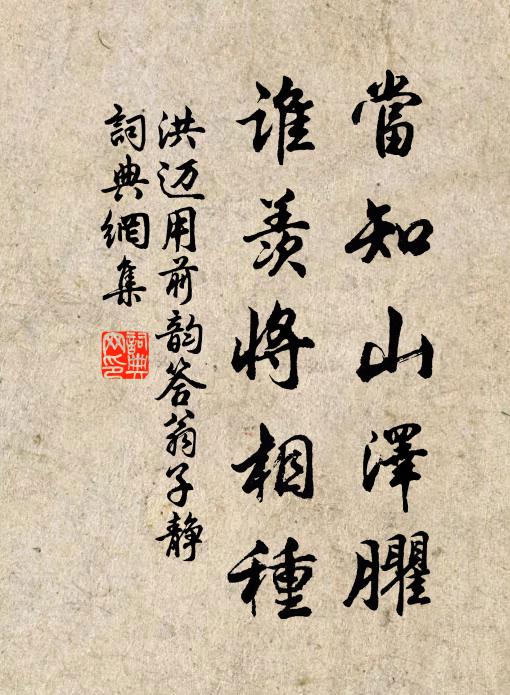 當知山澤臞
誰羨將相種
洪迈用前韵答翁子静
詞典網集
詞典
网印